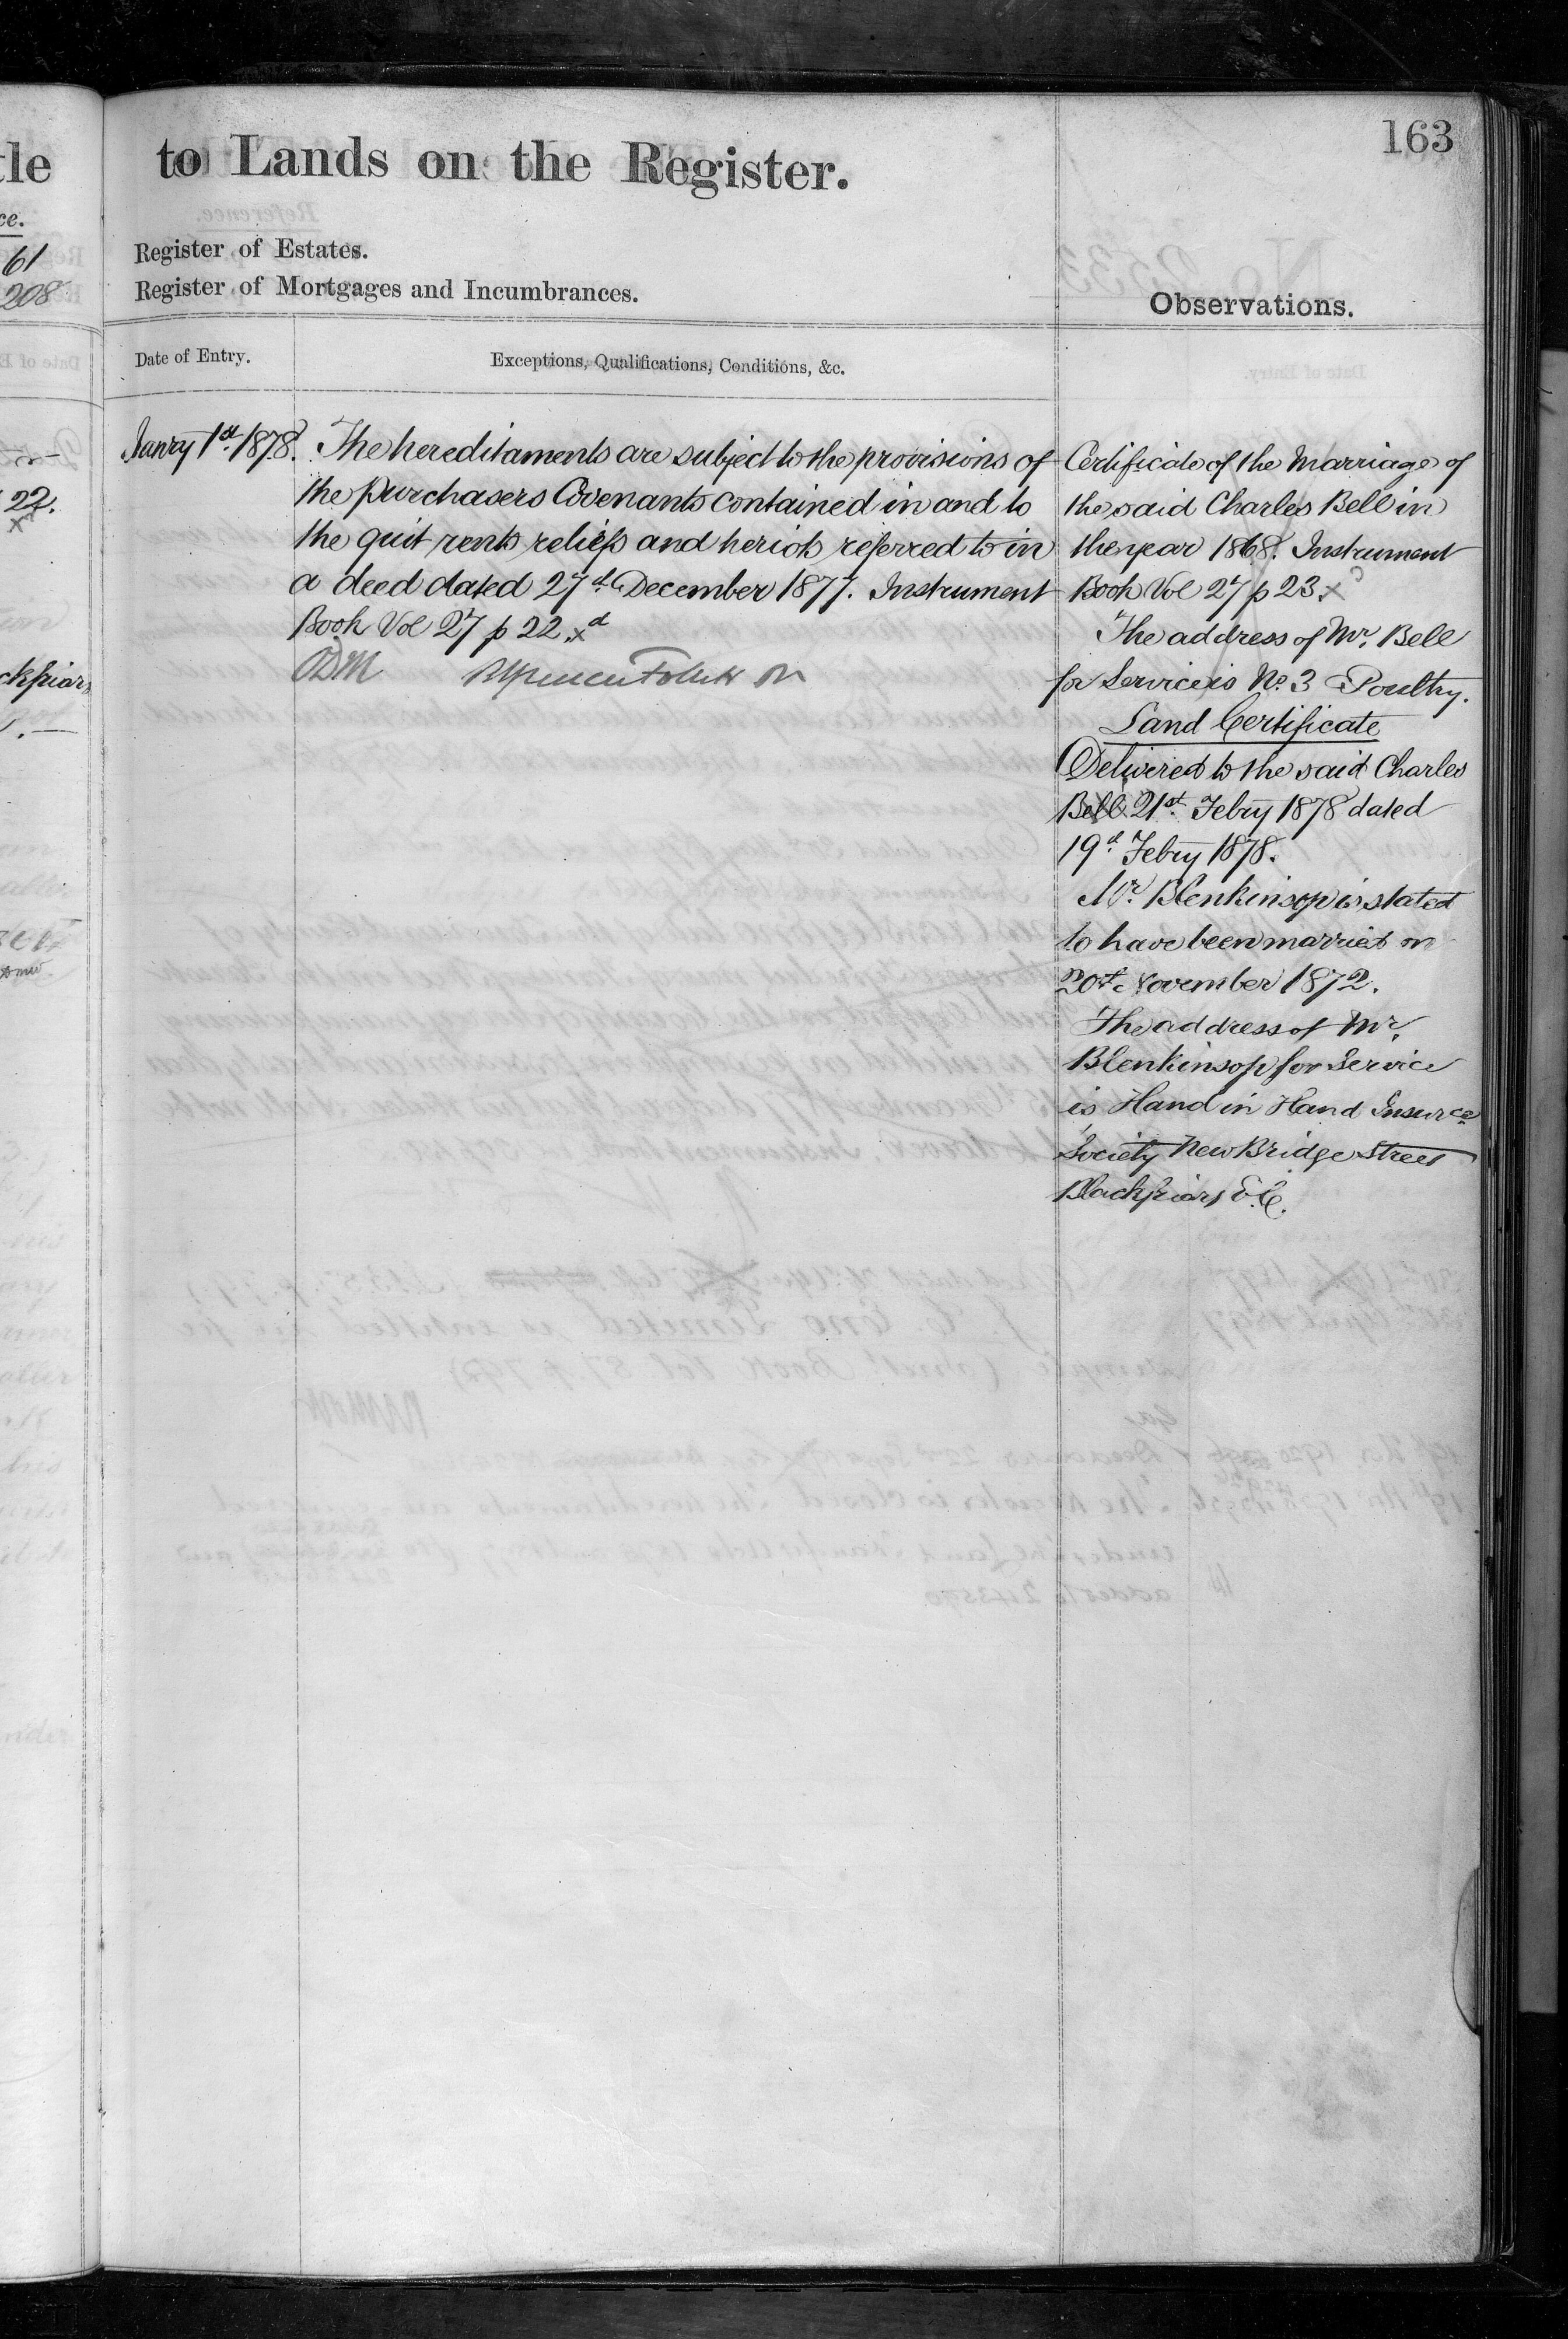 163
tle
to Lands on the Register.
ce.
61
208
Register of Estates.
Register of Mortgages and Incumbrances.
Observations.
Date of Entry.
Exceptions, Qualifications, Conditions, &c.
Janry 1st 1878.
The hereditaments are subject to the provisions of
the purchasers Covenants contained in and to
the quit rents reliefs and heriots referred to in
a deed dated 27th December 1877. Instrument
Book Vol 27 p 22.
22.
ckfriars
Certificate of the Marriage of
the said Charles Bell in
the year 1868. Instrument
Book Vol 27 p 23.
The address of Mr. Bell
for Service is No. 3 Poultry.
Land Certificate
Delivered to the said Charles
Bell 21st Febry 1878 dated
19th Febry 1878.
Mr. Blenkinsop is stated
to have been married on
20th November 1872.
The address of Mr.
Blenkinsop for Service
is Hand in Hand Insurce
Society New Bridge Street
Blackfriars E.C.